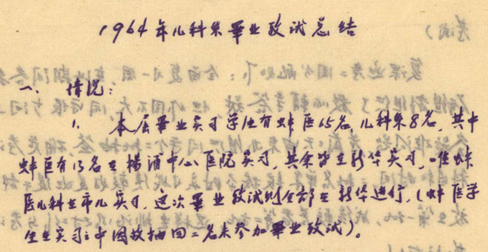 1964年儿科系毕业考试总结
一、情况：
1. 本届毕业实习学生有蚌医15名儿科系8名，其中
蚌医有13名在杨浦中心医院实习，其余皆在新华实习，唯蚌
医儿科在市儿实习，这次毕业考试则全部在新华进行，（蚌医学
生在实习中因故抽回二名未参加毕业考试）。